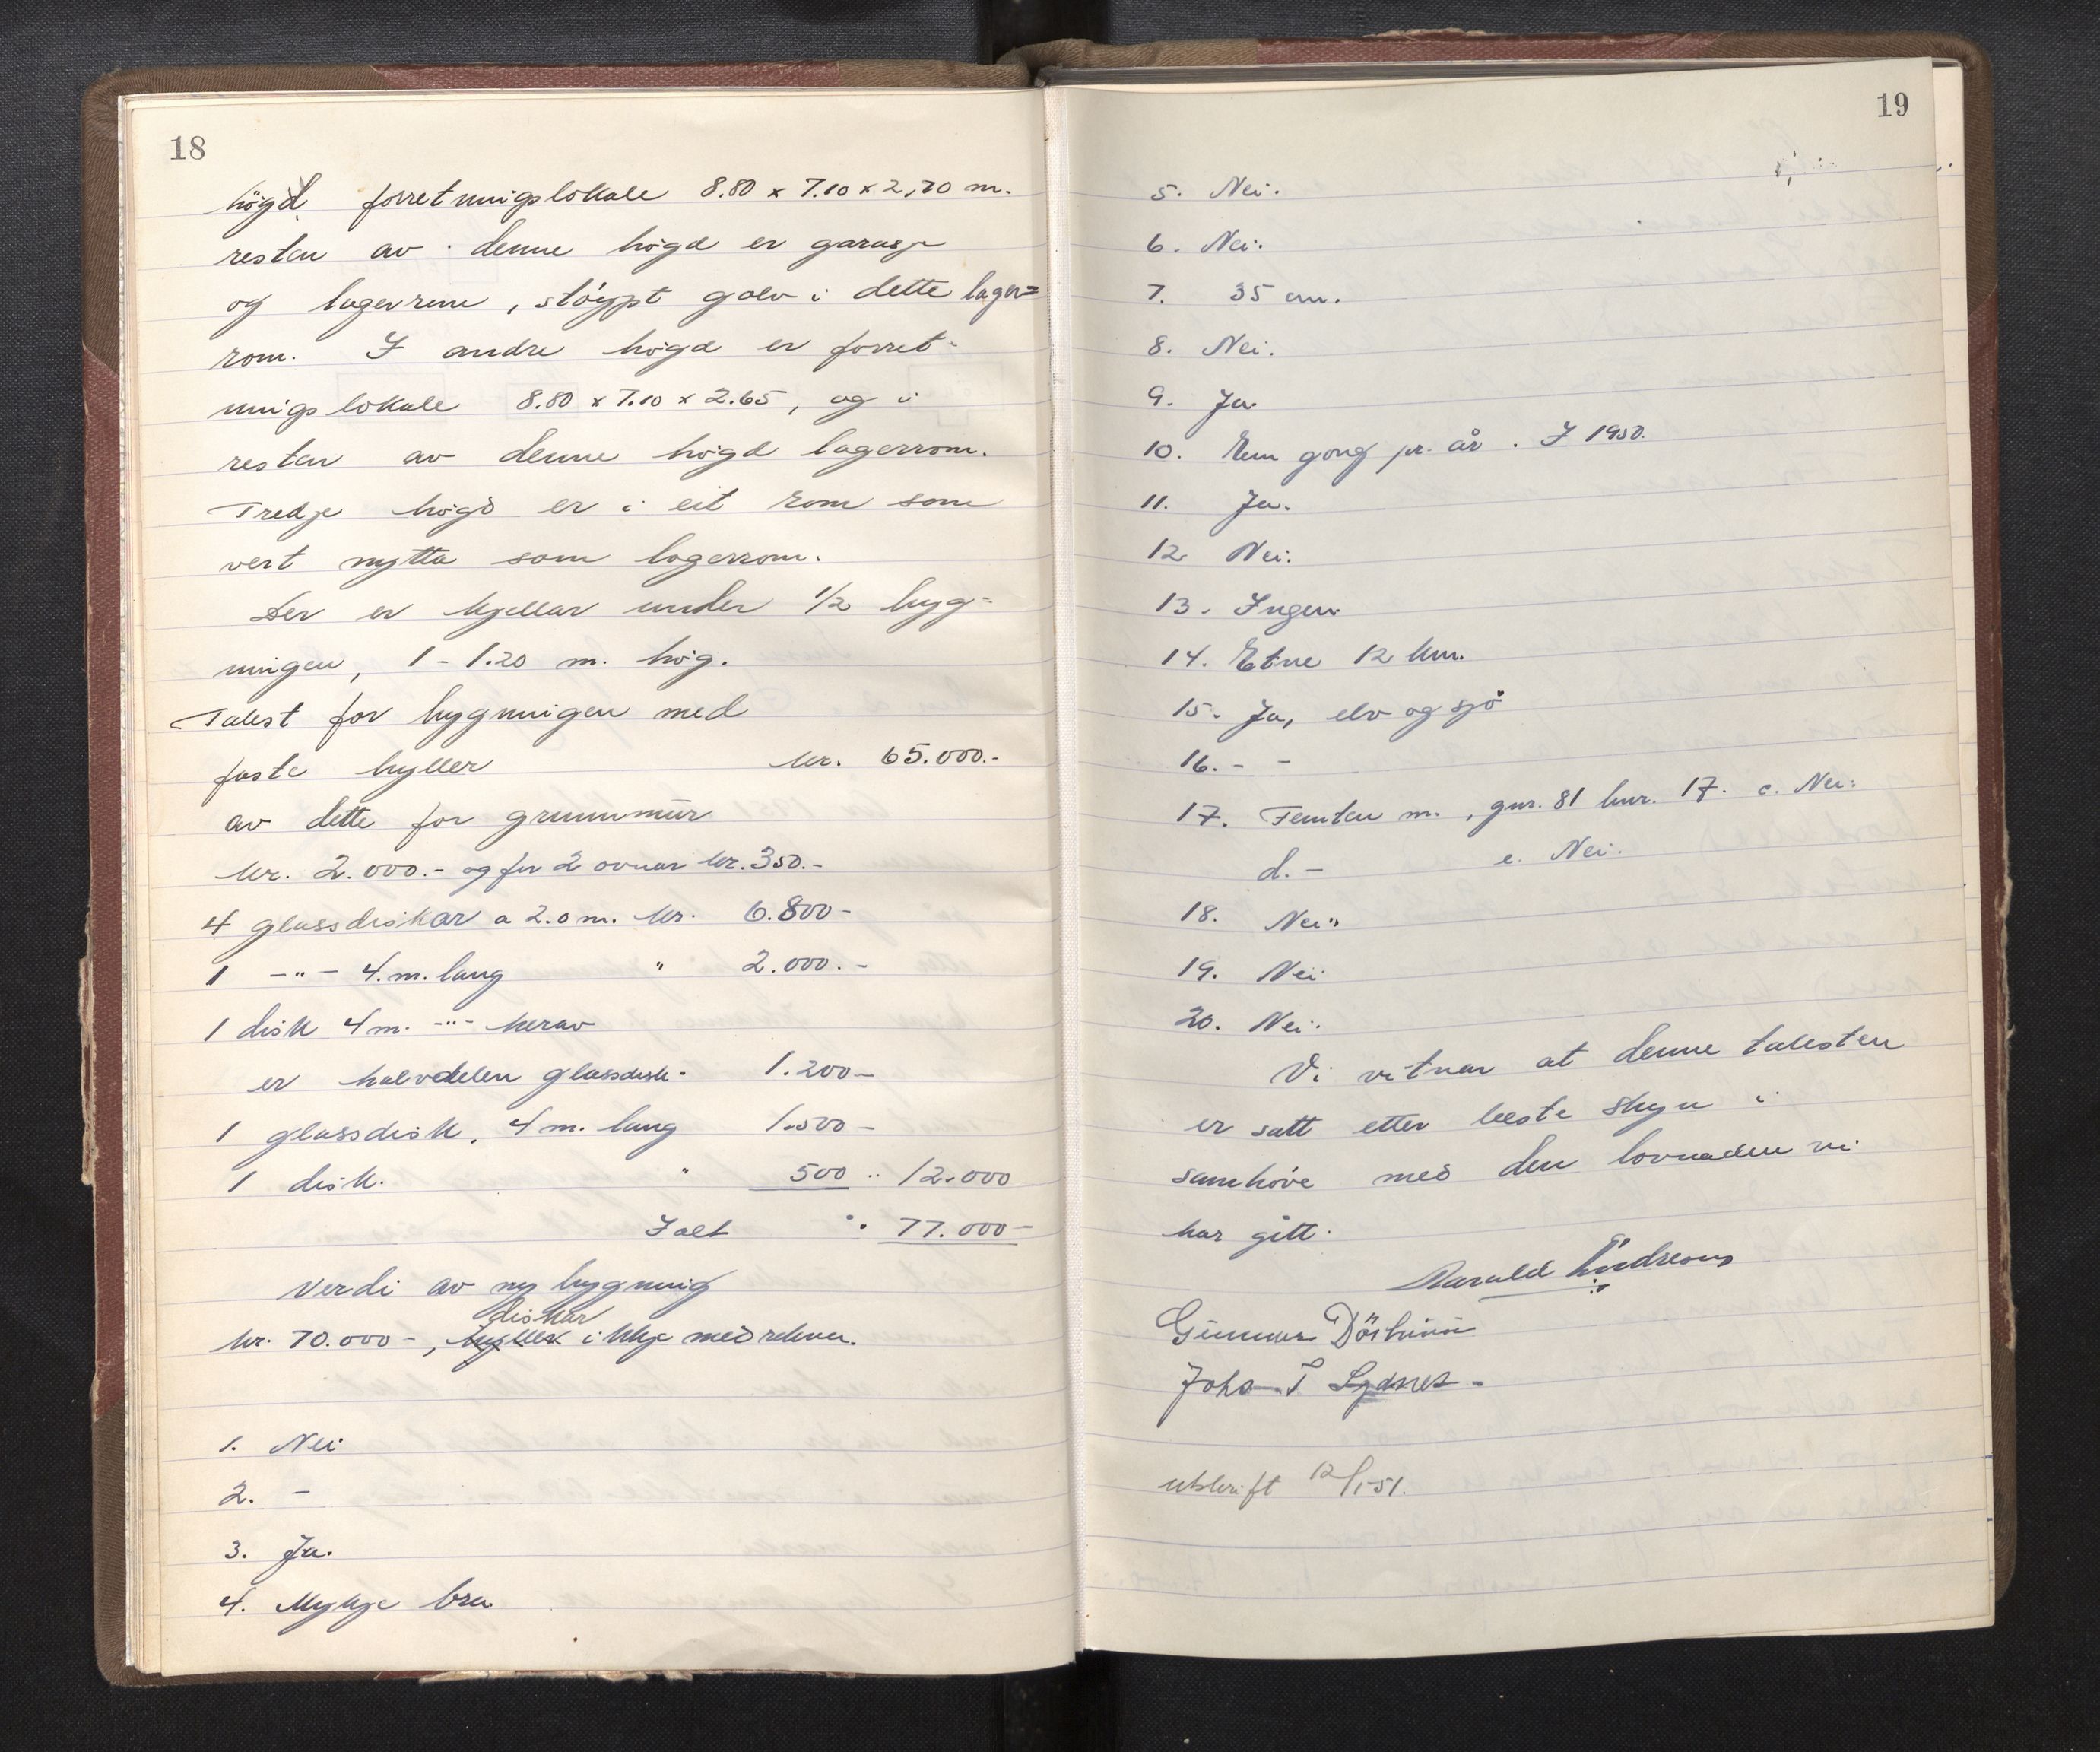 18
högd forretningslokale 8.80 x 7.10 x 2,70 m.
resten av denne högd er garasje
og lagerrom, stöypt golv i dette lager=
rom. I andre högd er forret-
ningslokale 8.80 x 7.10 x 2.65, og i
resten av denne högd lagerrom.
Tredje högd er i eit rom som
vert nytta som lagerrom.
Der er kjellar under 1/2 byg=
ningen, 1 - 1.20 m. høg.
Takst for bygningen med
faste hyller kr. 65.000.-
av dette for grunnmur
kr. 2.000.- og for 2 ovnar kr. 350.-
4 glassdiskar a 2.0 m. kr. 6.800-
1 -"- 4.m. lang " 2.000.-
1 disk 4 m. -"- herav
er halvdelen glassdisk- 1.200-
1 glassdisk, 4 m. lang 1.500-
1 disk. " 500 " 12.000
Ialt " 77.000-
Verdi av ny bygning
diskar
kr. 70.000-, hyller ikkje medrekna.
1. Nei
2. -
3. Ja.
4. Mykje bra
19
5. Nei.
6. Nei.
7. 35 cm.
8. Nei.
9. Ja.
10. Ein gong pr. år. I 1950.
11. Ja.
12. Nei.
13. Ingen
14. Etne 12 km.
15. Ja, elv og sjö
16. - -
17. Femten m., gnr. 81 bnr. 17. c. Nei.
d. - e. Nei.
18. Nei.
19. Nei
20. Nei.
Vi vitnar at denne taksten
er satt etter beste skyn i
samhöve med den lovnaden vi
har gitt.
Harald Endresen
Gunnar
Johs. T
utskrift 12/1-51.